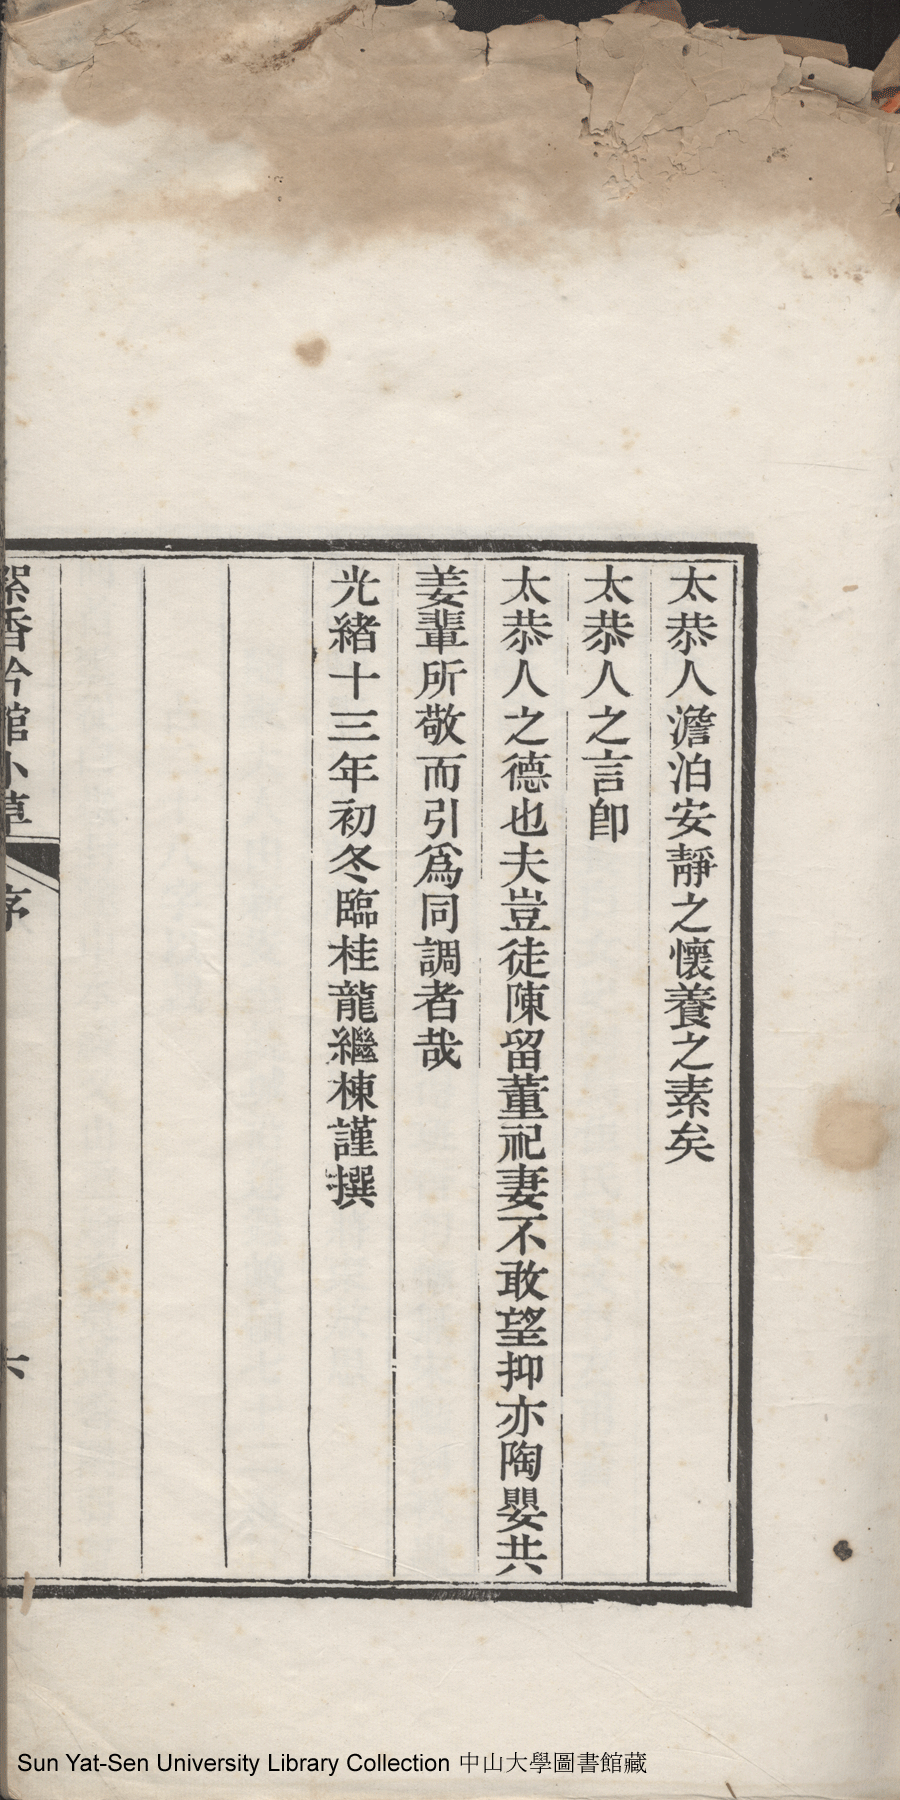 太恭人澹泊安靜之懷養之素矣
太恭人之言卽
太恭人之德也夫豈徒陳留董祀妻不敢望抑亦陶嬰共
姜輩所敬而引爲同調者哉
光緒十三年初冬臨桂龍繼棟謹撰
絮香吟館小草
序
六
Sun Yat-Sen University Library Collection 中山大學圖書館藏